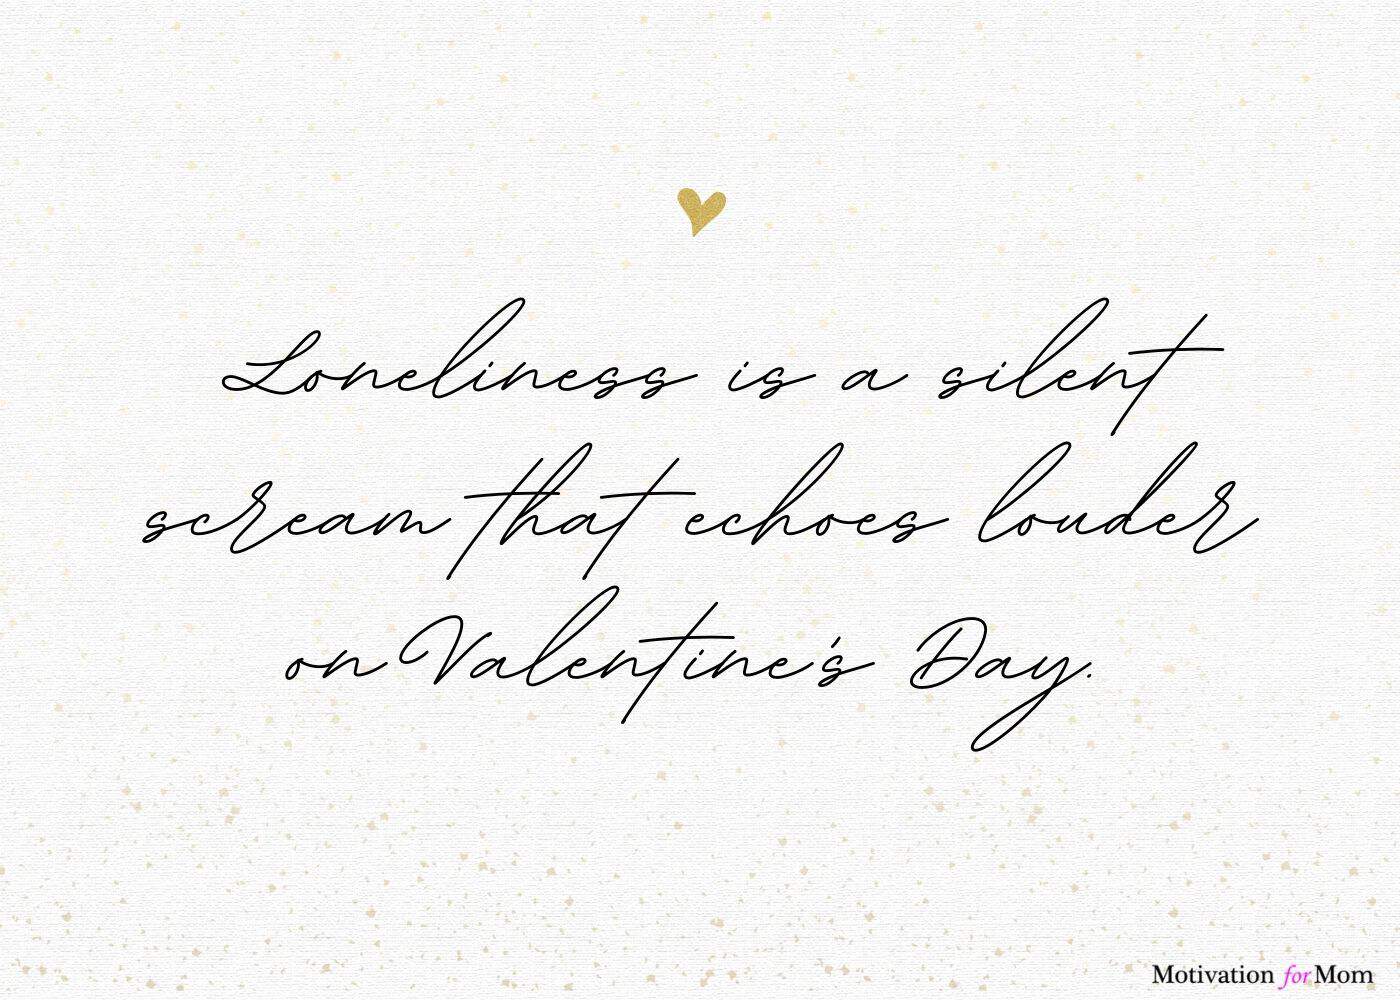 Loneliness is a silent
scream that echoes louder
on Valentine's Day.
Motivation for Mom